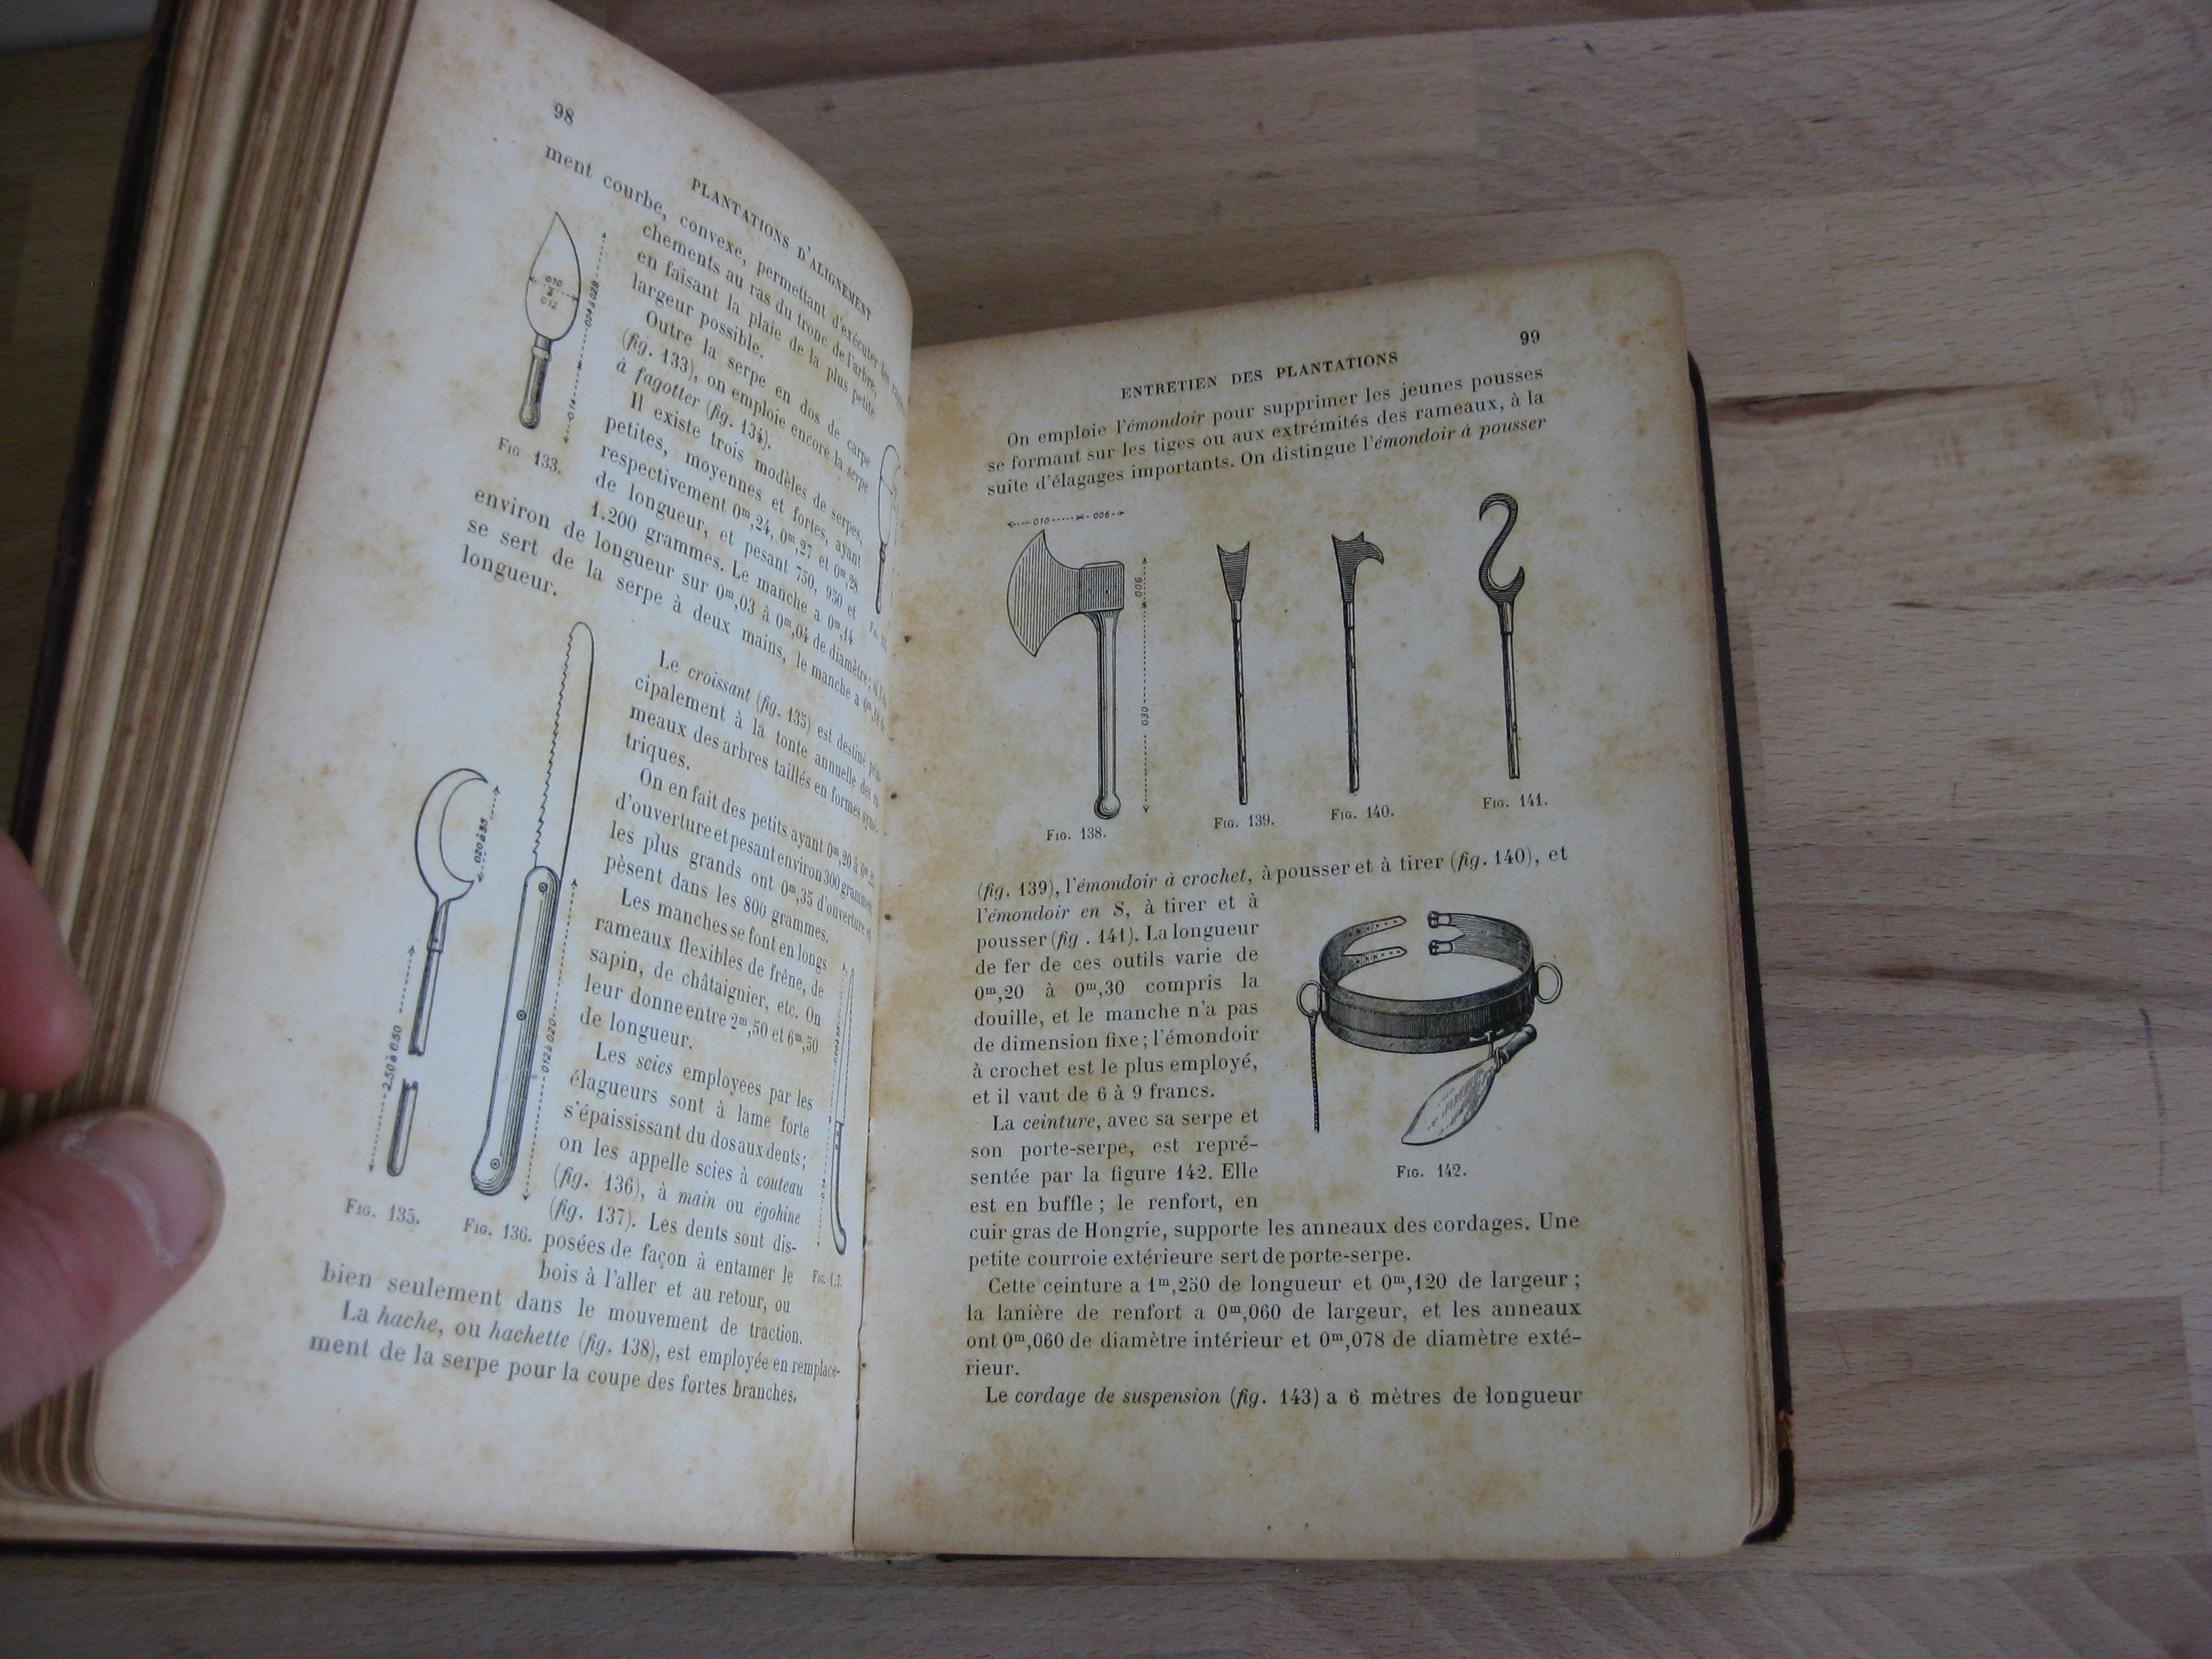 98
PLANTATIONS D'ALIGNEMENT
ment courbe, convexe, permettant d'exécuter les
chements au ras du tronc de l'arbre,
en faisant la plaie de la plus petite
largeur possible.
Outre la serpe en dos de carpe
(fig. 133), on emploie encore la serpe
à fagotter (fig. 134).
Il existe trois modèles de serpes,
petites, moyennes et fortes, ayant
respectivement 0m,24, 0m,27 et 0m,28
de longueur, et pesant 750, 950 et
1.200 grammes. Le manche a 0m,14
environ de longueur sur 0m,03 à 0m,04 de diamètre; si l'on
se sert de la serpe à deux mains, le manche a
longueur.
010
à
012
024 à 028
014
FIG 133.
Le croissant (fig. 135) est destiné prin-
cipalement à la tonte annuelle des ra-
meaux des arbres taillés en formes symé-
triques.
On en fait des petits ayant 0m,20 à
d'ouverture et pesant environ 300 grammes,
les plus grands ont 0m,35 d'ouverture et
pèsent dans les 800 grammes.
Les manches se font en longs
rameaux flexibles de frêne, de
sapin, de châtaignier, etc. On
leur donne entre 2m,50 et 6m,50
de longueur.
Les scies employées par les
élagueurs sont à lame forte
s'épaississant du dos aux dents;
on les appelle scies à couteau
(fig. 136), à main ou égohine
(fig. 137). Les dents sont dis-
posées de façon à entamer le
bois à l'aller et au retour, ou
020 à 35
2.50 à 6.50
012 à 020
FIG. 135.
FIG. 136.
bien seulement dans le mouvement de traction.
La hache, ou hachette (fig. 138), est employée en remplace-
ment de la serpe pour la coupe des fortes branches.
ENTRETIEN DES PLANTATIONS
99
On emploie l'émondoir pour supprimer les jeunes pousses
se formant sur les tiges ou aux extrémités des rameaux, à la
suite d'élagages importants. On distingue l'émondoir à pousser
010
006
006
030
FIG. 138.
FIG. 139.
FIG. 140.
FIG. 141.
(fig. 139), l'émondoir à crochet, à pousser et à tirer (fig. 140), et
l'émondoir en S, à tirer et à
pousser (fig . 141). La longueur
de fer de ces outils varie de
0m,20 à 0m,30 compris la
douille, et le manche n'a pas
de dimension fixe; l'émondoir
à crochet est le plus employé,
et il vaut de 6 à 9 francs.
La ceinture, avec sa serpe et
son porte-serpe, est repré-
sentée par la figure 142. Elle
est en buffle; le renfort, en
FIG. 142.
cuir gras de Hongrie, supporte les anneaux des cordages. Une
petite courroie extérieure sert de porte-serpe.
Cette ceinture a 1m,250 de longueur et 0m,120 de largeur;
la lanière de renfort a 0m,060 de largeur, et les anneaux
ont 0m,060 de diamètre intérieur et 0m,078 de diamètre exté-
rieur.
Le cordage de suspension (fig. 143) a 6 mètres de longueur